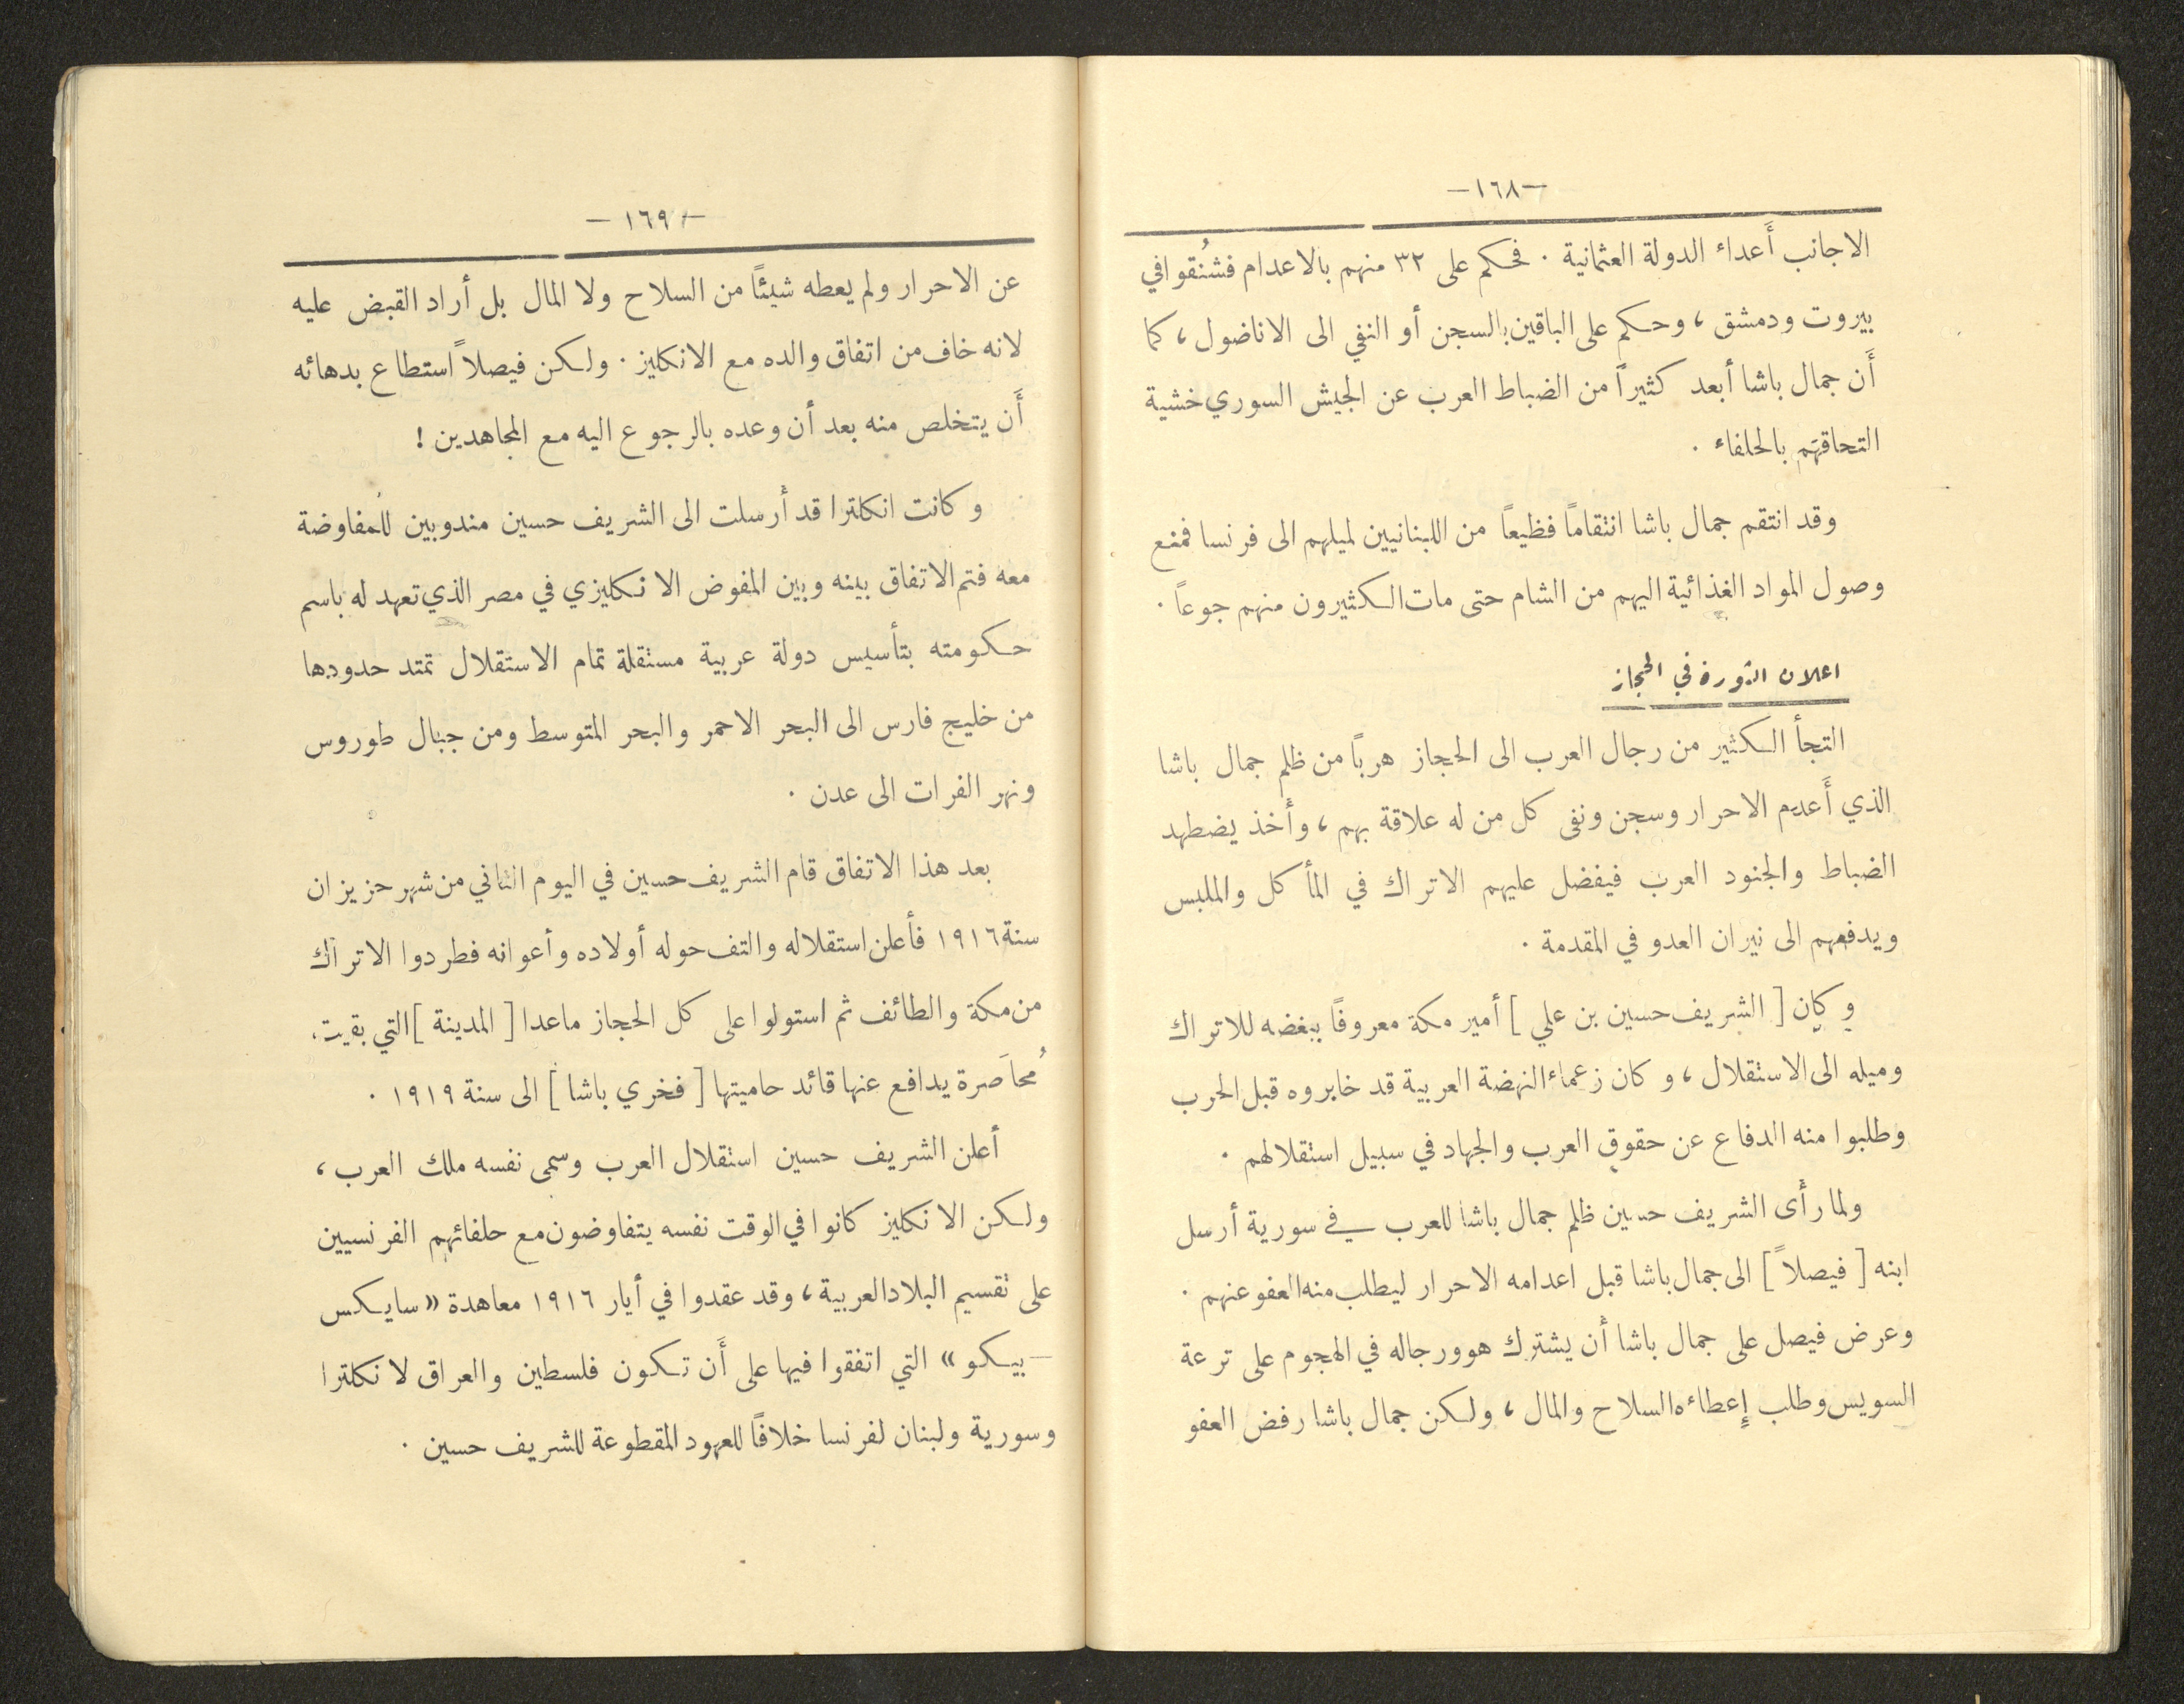 —١٦٨—
الاجانب أَعداء الدولة العثمانية . فحكم على ٣٢ منهم بالاعدام فشُنقوا في
بيروت ودمشق ، وحكم على الباقين بالسجن أو النفي الى الاناضول ، كما
أَن جمال باشا أبعد كثيراً من الضباط العرب عن الجيش السوري خشية
التحاقهم بالحلفاء .
وقد انتقم جمال باشا انتقاماً فظيعاً من اللبنانيين لميلهم الى فرنسا فمنع
وصول المواد الغذائية اليهم من الشام حتى مات الكثيرون منهم جوعاً .
اعلان الثورة في الحجاز
التجأ الكثير من رجال العرب الى الحجاز هرباً من ظلم جمال باشا
الذي أَعدم الاحرار وسجن ونفى كل من له علاقة بهم ، وأخذ يضطهد
الضباط والجنود العرب فيفضل عليهم الاتراك في المأكل والملبس
ويدفعهم الى نيران العدو في المقدمة .
وكان [ الشريف حسين بن علي ] أمير مكة معروفاً ببغضه للاتراك
وميله الى الاستقلال ، وكان زعماء النهضة العربية قد خابروه قبل الحرب
وطلبوا منه الدفاع عن حقوق العرب والجهاد في سبيل استقلالهم .
ولما رأى الشريف حسين ظلم جمال باشا للعرب في سورية أرسل
ابنه [ فيصلاً ] الى جمال باشا قبل اعدامه الاحرار ليطلب منه العفو عنهم .
وعرض فيصل على جمال باشا أن يشترك هو ورجاله في الهجوم على ترعة
السويس وطلب إعطاءه السلاح والمال ، ولكن جمال باشا رفض العفو
—١٦٩—
عن الاحرار ولم يعطه شيئاً من السلاح ولا المال بل أراد القبض عليه
لانه خاف من اتفاق والده مع الانكليز . ولكن فيصلاً استطاع بدهائه
أَن يتخلص منه بعد أن وعده بالرجوع اليه مع المجاهدين !
وكانت انكلترا قد أرسلت الى الشريف حسين مندوبين للمفاوضة
معه فتم الاتفاق بينه وبين المفوض الانكليزي في مصر الذي تعهد له باسم
حكومته بتأسيس دولة عربية مستقلة تمام الاستقلال تمتد حدودها
من خليج فارس الى البحر الاحمر والبحر المتوسط ومن جبال طوروس
ونهر الفرات الى عدن .
بعد هذا الاتفاق قام الشريف حسين في اليوم الثاني من شهر حزيران
سنة ١٩١٦ فأعلن استقلاله والتف حوله أولاده وأعوانه فطردوا الاتراك
من مكة والطائف ثم استولوا على كل الحجاز ماعدا [ المدينة ] التي بقيت
مُحاصَرة يدافع عنها قائد حاميتها [ فخري باشا ] الى سنة ١٩١٩ .
أعلن الشريف حسين استقلال العرب وسمى نفسه ملك العرب ،
ولكن الانكليز كانوا في الوقت نفسه يتفاوضون مع حلفائهم الفرنسيين
على تقسيم البلاد العربية ، وقد عقدوا في أيار ١٩١٦ معاهدة « سايكس
— بيكو » التي اتفقوا فيها على أَن تكون فلسطين والعراق لانكلترا
وسورية ولبنان لفرنسا خلافاً للعهود المقطوعة للشريف حسين .